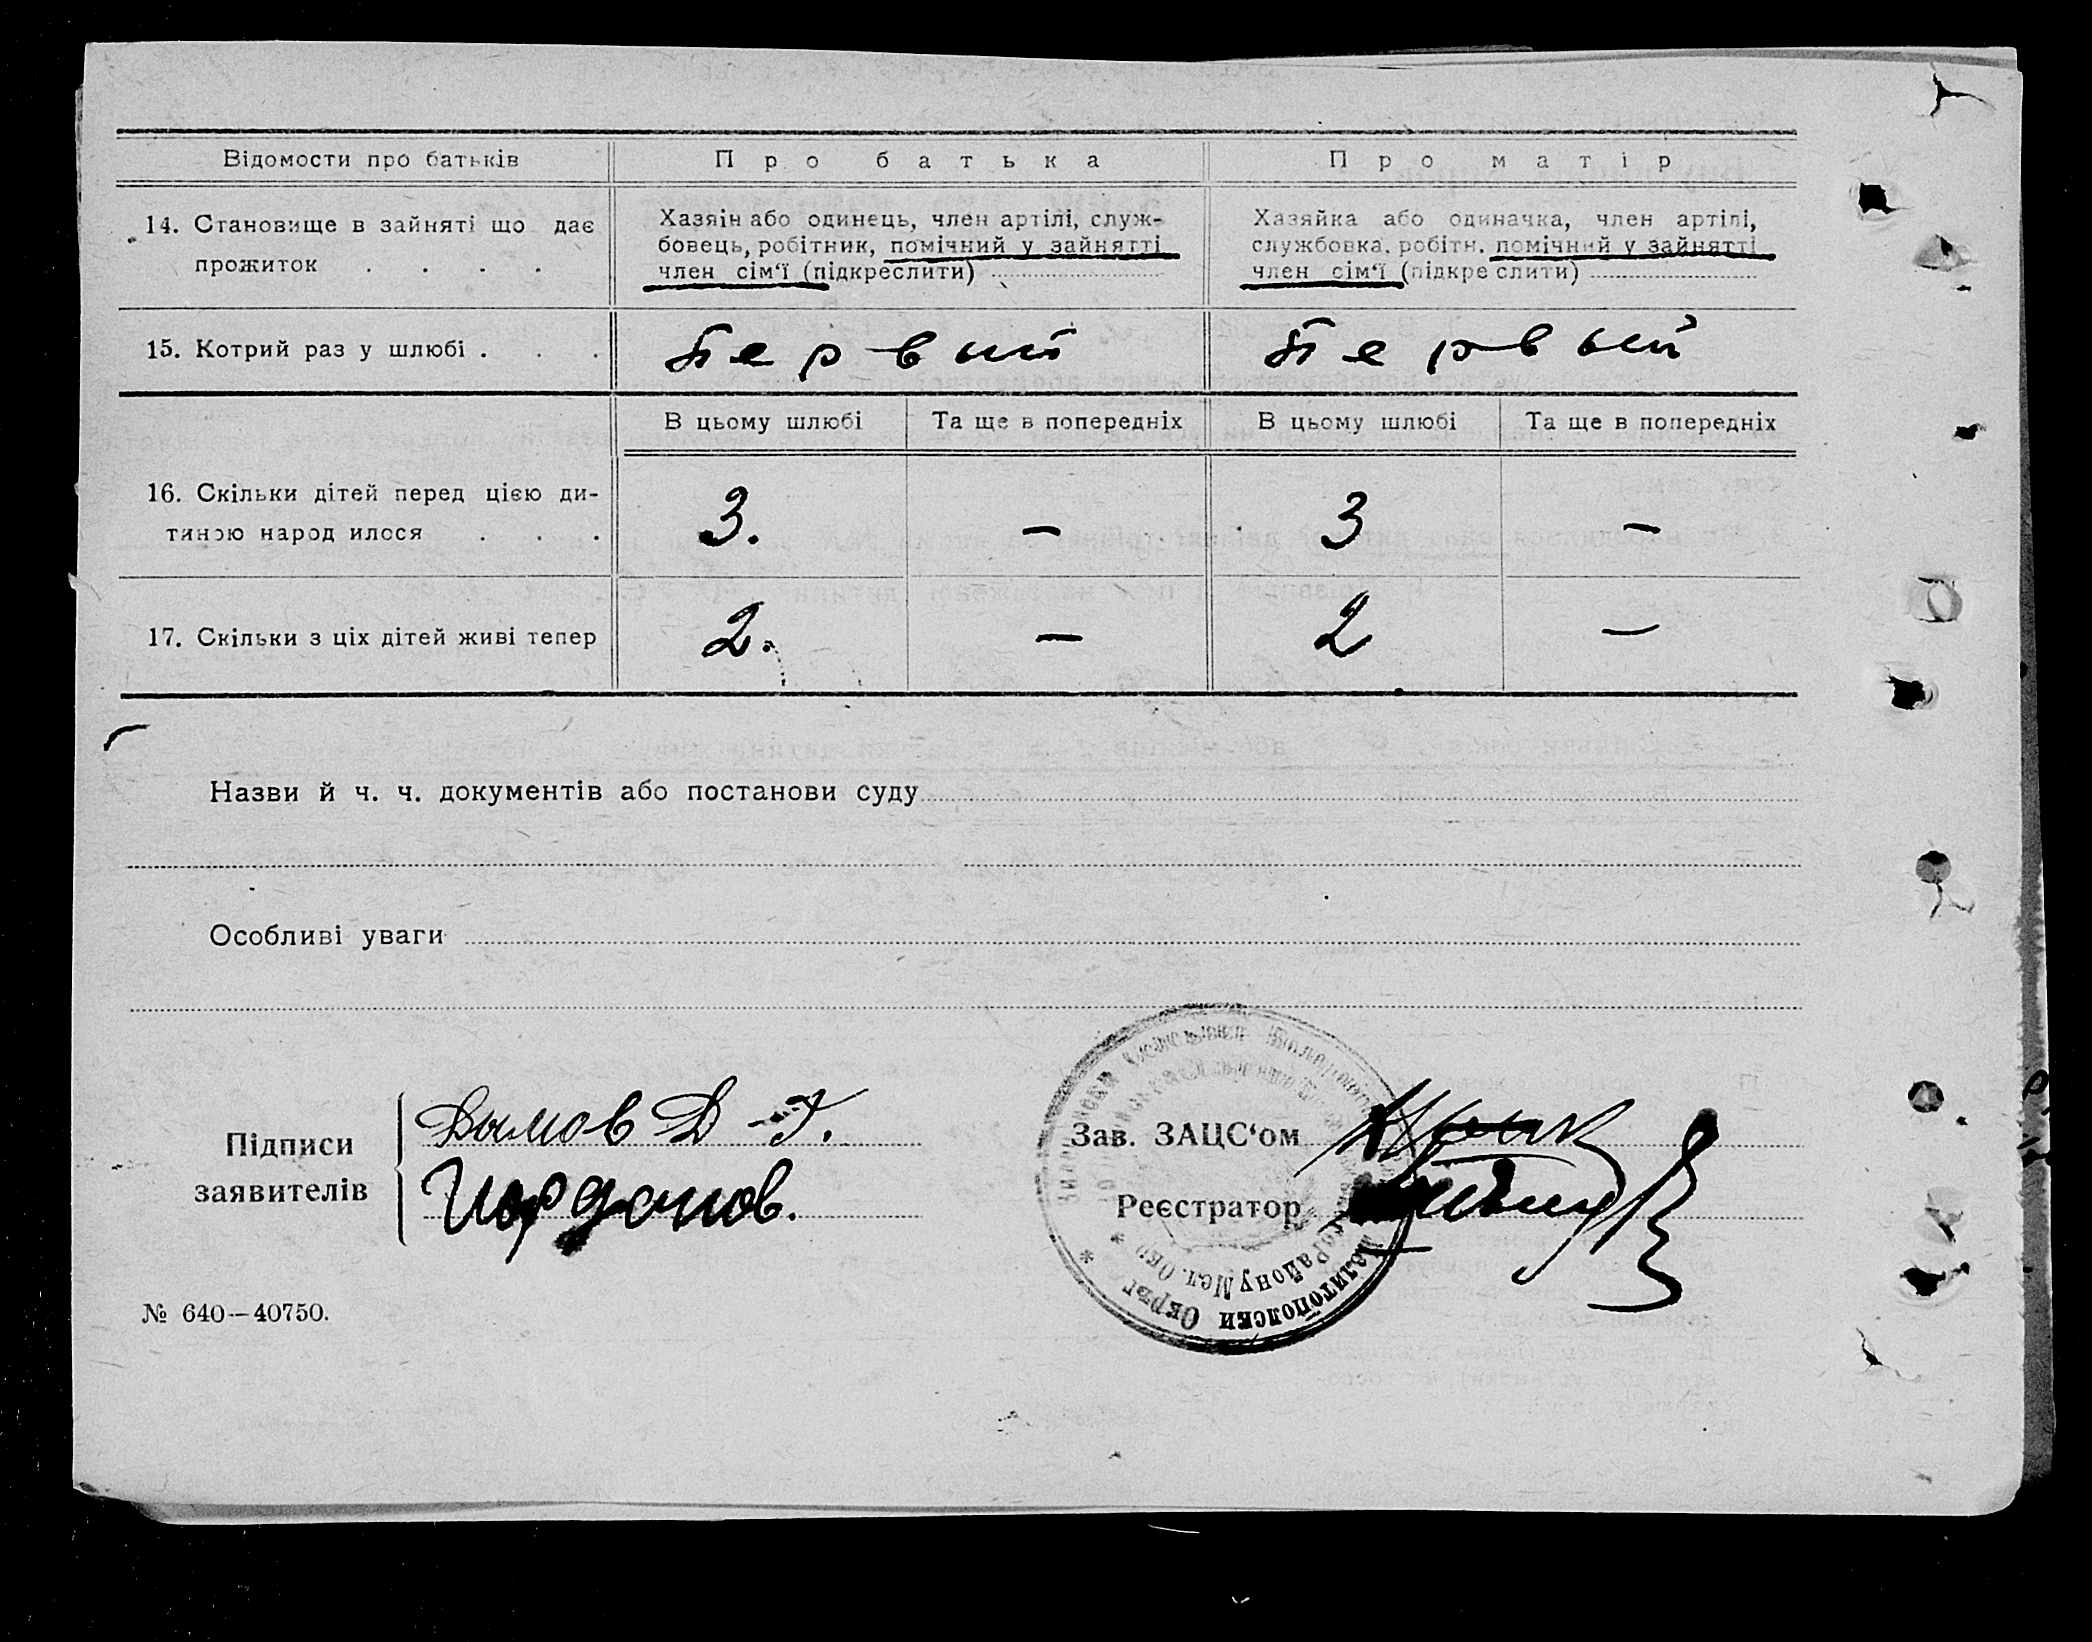 Відомости про батьків
Про батька
Про матір
14. Становище в зайняті що дає
прожиток . . . .
Хазяін або одинець, член артілі, служ-
бовець, робітник, помічний у зайнятті
член сім'ї (підкреслити)
Хазяйка або одиначка, член артілі,
службовка, робітн. помічний у зайнятті
член сім'ї (підкреслити)
15. Котрий раз у шлюбі . . .
Первий
Первый
В цьому шлюбі
Та ще в попередніх
В цьому шлюбі
Та ще в попередніх
16. Скільки дітей перед цією ди-
тиною народилося . . .
3.
—
3
—
17. Скільки з ціх дітей живі тепер
2.
—
2
—
Назви й ч. ч. документів або постанови суду
Особливі уваги
Підписи
заявителів
Дымов Д-Г.
Иорданов.
Зав. ЗАЦС'ом
Реєстратор
Мелитополски Окръг
Району Мел. Окр
№ 640—40750.